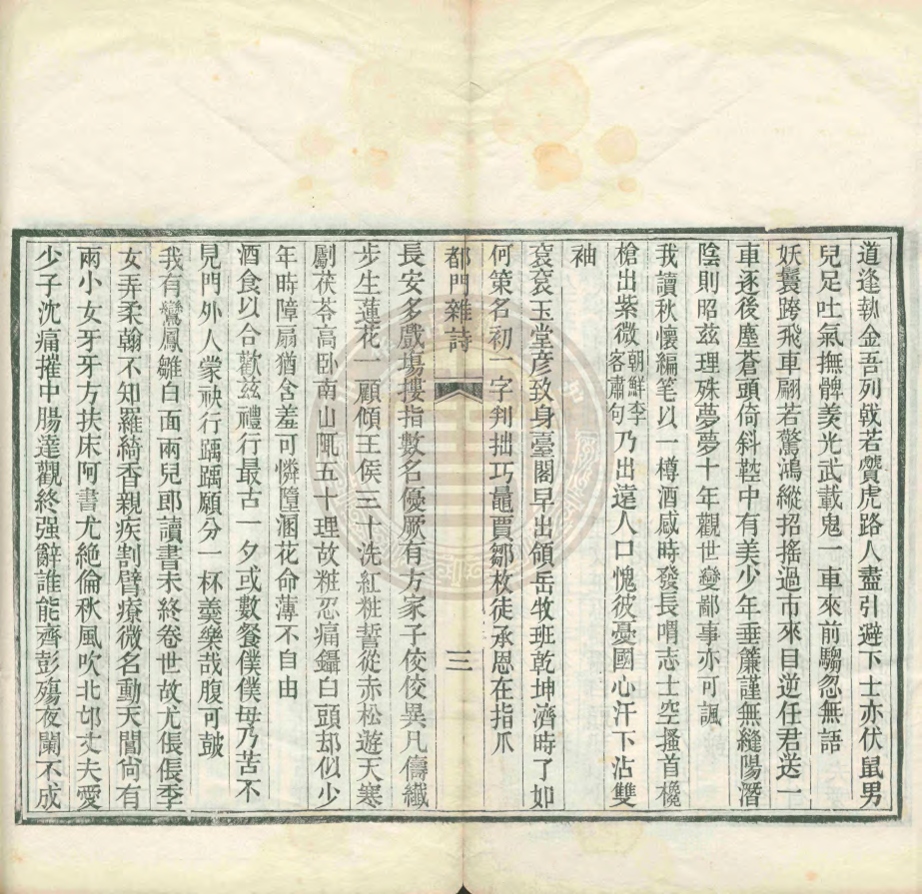 道逢執金吾列戟若贙虎路人盡引避下士亦伏鼠男
兒足吐氣撫髀羨光武載鬼一車來前騶忽無語
妖鬟跨飛車翩若驚鴻縱招搖過市來目逆任君送一
車逐後塵蒼頭倚斜鞚中有美少年垂簾謹無縫陽潛
陰則昭茲理殊夢夢十年觀世變鄙事亦可諷
我讀秋懷編笔以一樽酒感時發長喟志士空搔首欃
槍出紫微朝鮮李客肅句乃出遠人口愧彼憂國心汗下沾雙
袖
袞袞玉堂彦致身臺閣早出領岳牧班乾坤濟時了如
何策名初一字判拙巧鼂賈鄒枚徒承恩在指爪
都門雜詩 三
長安多戲場摟指數名優厥有方家子佼佼異凡儔纖
步生蓮花一顧傾王侯三十洗紅粧誓從赤松遊天寒
劚茯苓高卧南山陬五十理故粧忍痛鑷白頭却似少
年時障扇猶含羞可憐墮溷花命薄不自由
酒食以合歡茲禮行最古一夕或數餐僕僕毋乃苦不
見門外人蒙袂行踽踽願分一杯羹樂哉腹可皷
我有鸞鳳雛白面兩兒郎讀書未終卷世故尤倀倀季
女弄柔翰不知羅綺香親疾割臂療微名動天閶尙有
兩小女牙牙方扶床阿書尤絶倫秋風吹北邙丈夫愛
少子沈痛摧中腸達觀終强辭誰能齊彭殤夜闌不成